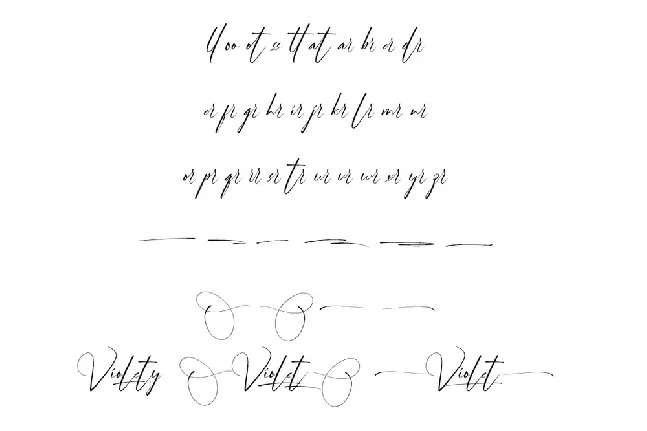 ll oo ot ss tt at ar br cr dr
er fr gr hr ir jr kr lr mr nr
or pr qr rr sr tr ur vr wr xr yr zr
Violety Violet Violet